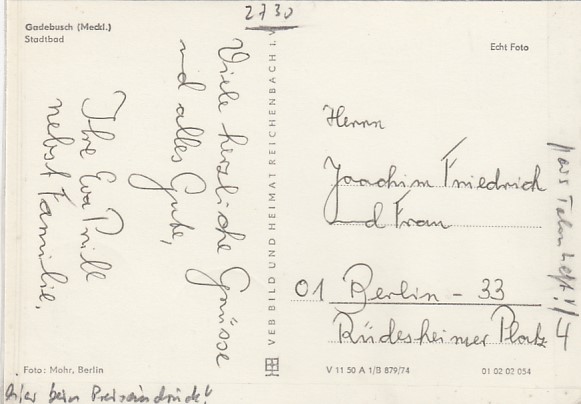 2730
Gadebusch (Meckl.)
Stadtbad
Echt Foto
Viele herzliche Grüsse
und alles Gute,
Ihre Eva Prill
nebst Familie.
VEB BILD UND HEIMAT REICHENBACH i. V.
Herrn
Joachim Friedrich
und Frau
01 Berlin - 33
Rüdesheimer Platz 4
Foto: Mohr, Berlin
V 11 50 A 1/B 879/74
01 02 02 054
hier beim